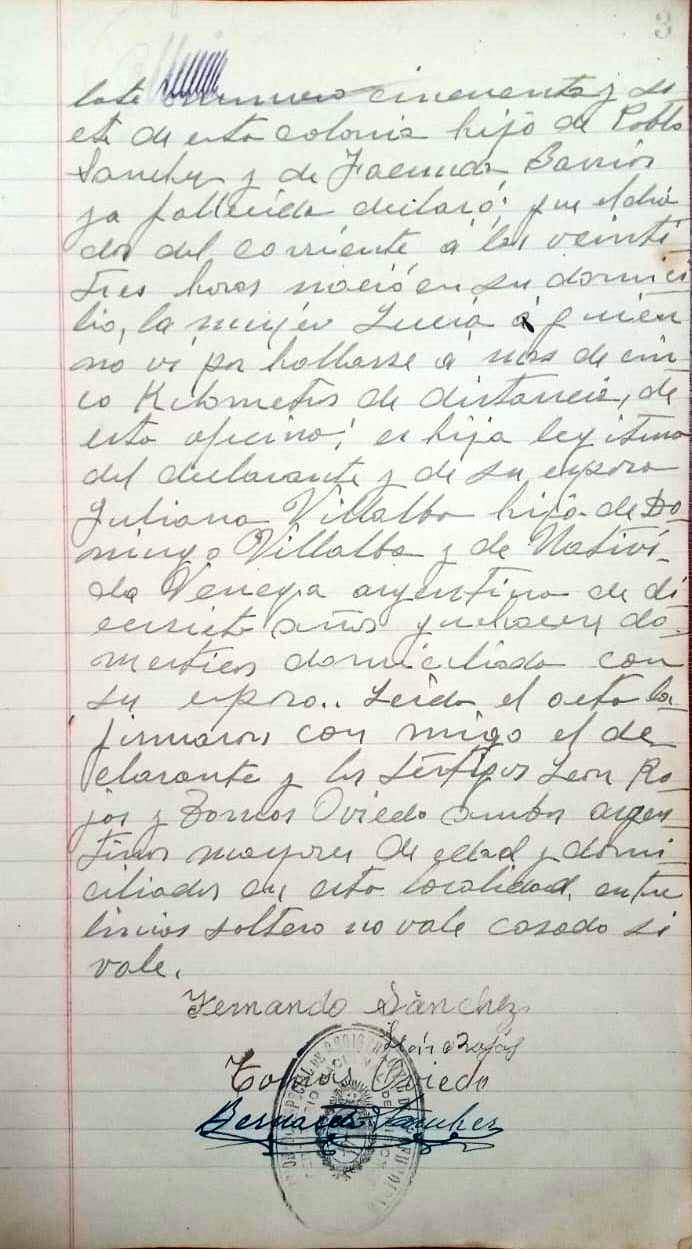 lote numero cincuenta y si
ete de esta colonia hijo de Pablo
Sanchez y de Facunda Barrios
ya fallecida declaró; que el dia
dos del corriente á las veinti
tres horas nació en su domici
lio, la mujer Lucia á quien
no vi por hallarse á mas de cin
co Kilometros de distancia, de
esta oficina; es hija legitima
del declarante y de su esposa
Juliana Villalba hija de Do-
mingo Villalba y de Nativi-
da Venega argentina de di
ecisiete años quehacere do-
mesticos domiciliada con
su esposo.. Leida el acta la
firmaron con migo el de
clarante y los testigos Leon Ro-
jas y Tomas Oviedo ambos argen
tinos mayores de edad y domi
ciliados en esta localidad, entre
linias soltero no vale casado si
vale.
Fernando Sànchez
León Rojas
Tomas Oviedo
Bernardo Sanchez